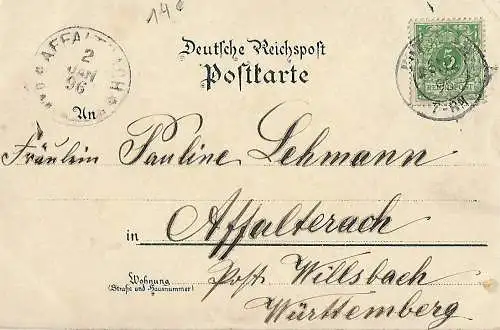 14.
Deutsche Reichspost
Postkarte
AFFALTRACH
2
JAN
96
5
An
Fräulein Pauline Lehmann
in Affalterach
Wohnung
(Straße und Hausnummer)
Post Willsbach
Württemberg